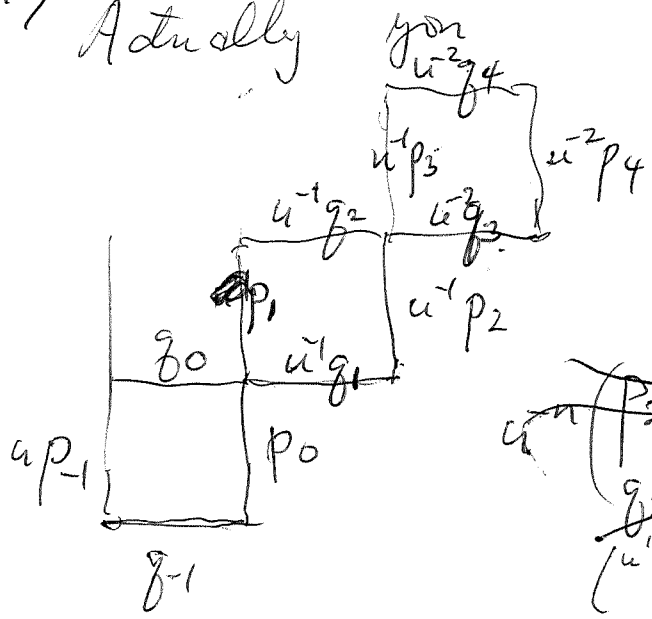 Actually you
u⁻²q₄
u⁻¹p₃ u⁻²p₄
u⁻¹q₂ u⁻²q₃
p₁ u⁻¹p₂
q₀ u⁻¹q₁
up₋₁ p₀
q₋₁